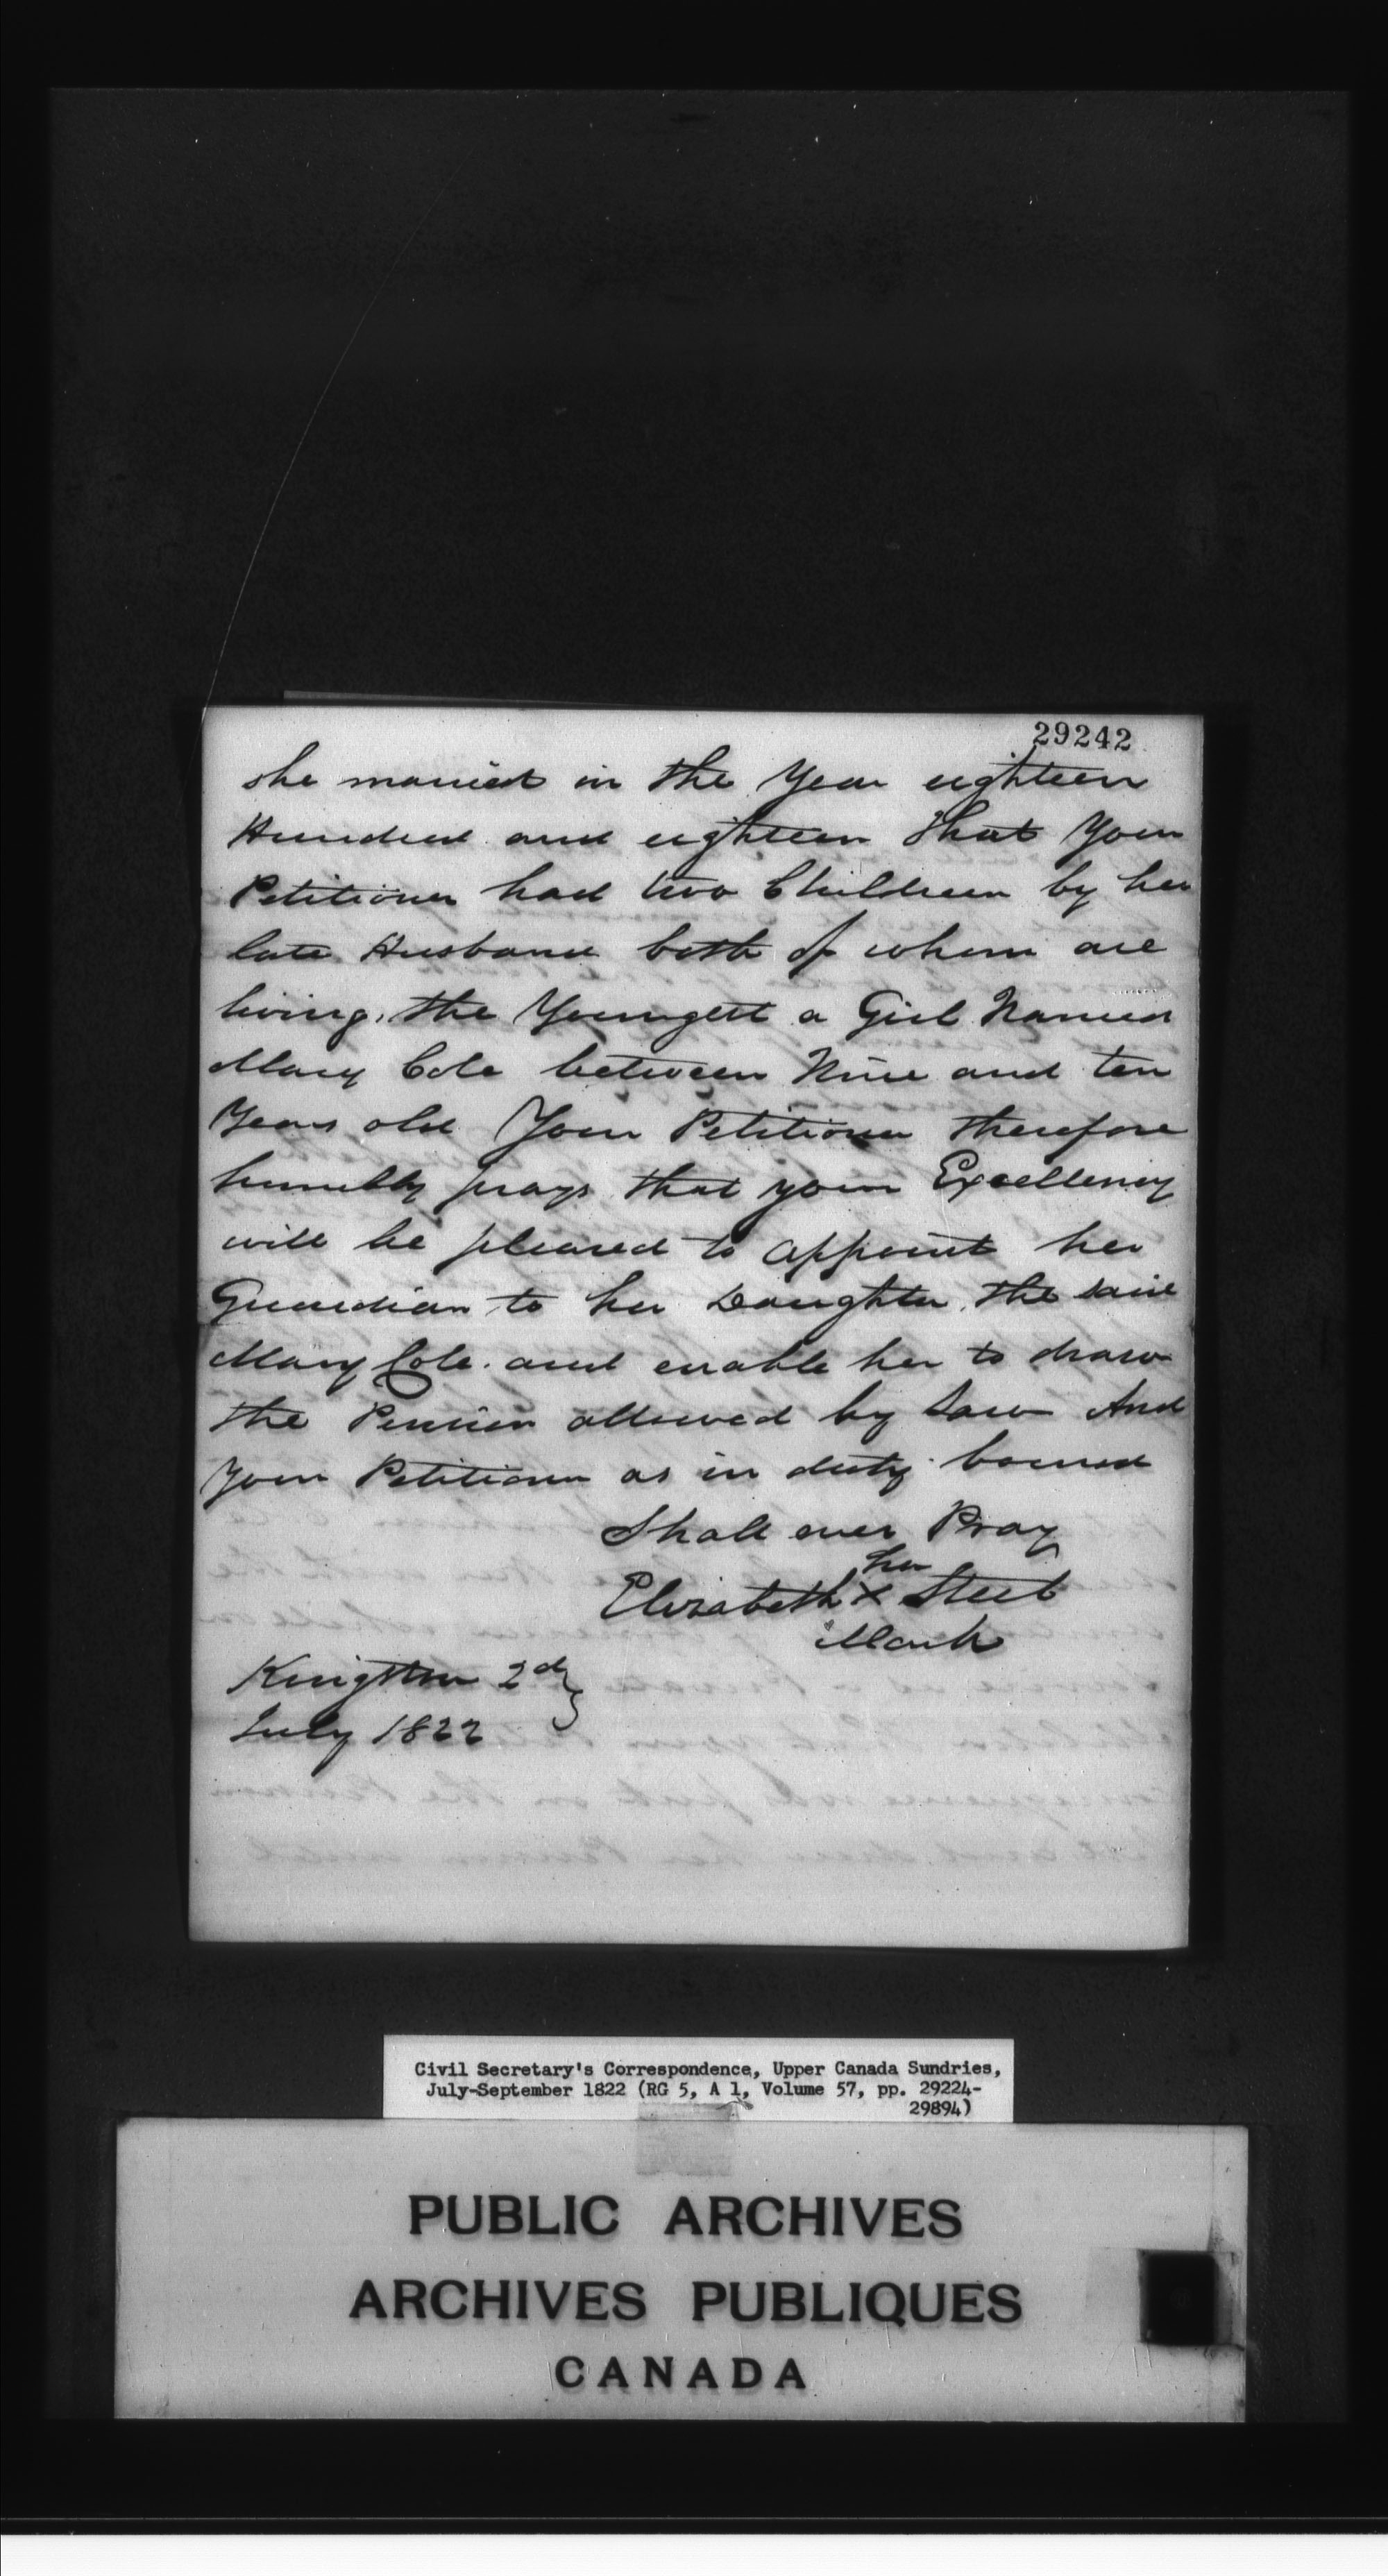 29242
she married in the Year eighteen
Hundred and eighteen That Your
Petitioner had two Children by her
late Husband both of whom are
living, the Youngest a Girl Named
Mary Cole between Nine and ten
Years old Your Petitioner therefore
humbly prays that your Excellency
will be pleased to appoint her
Guardian to her Daughter, the said
Mary Cole and enable her to draw
the Pension allowed by Law And
Your Petitioner as in duty bound
Shall ever Pray
her
Elizabeth X Steel
Mark
Kingston 2d
July 1822
Civil Secretary's Correspondence, Upper Canada Sundries,
July-September 1822 (RG 5, A 1, Volume 57, pp. 29224-
29894)
PUBLIC ARCHIVES
ARCHIVES PUBLIQUES
CANADA